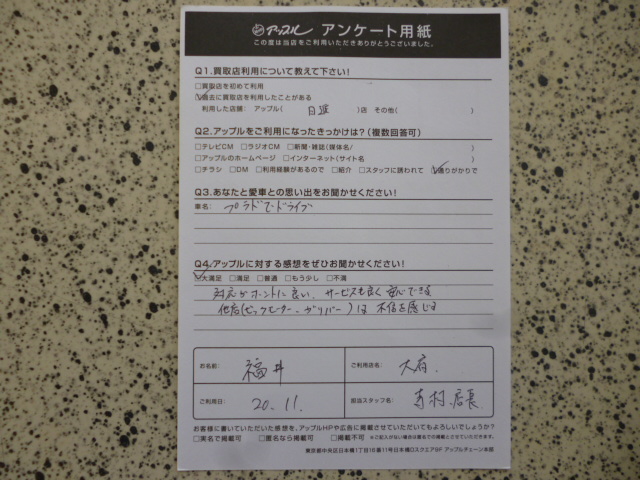 アップル アンケート用紙
この度は当店をご利用いただきありがとうございました。
Q1.買取店利用について教えて下さい!
□買取店を初めて利用
□過去に買取店を利用したことがある
利用した店舗: アップル( 日進 )店 その他( )
Q2.アップルをご利用になったきっかけは?(複数回答可)
□テレビCM □ラジオCM □新聞・雑誌(媒体名/ )
□アップルのホームページ □インターネット(サイト名 )
□チラシ □DM □利用経験があるので □紹介 □スタッフに誘われて □通りがかりで
Q3.あなたと愛車との思い出をお聞かせください!
車名: プラドでドライブ
Q4.アップルに対する感想をぜひお聞かせください!
□大満足 □満足 □普通 □もう少し □不満
対応がホントに良い、サービスも良く安心できる
他店(ビックモーター、ガリバー)は不信を感じる
お名前: 福井 ご利用店名: 大府
ご利用日: 20.11. 担当スタッフ名: 寺村 店長
お客様に書いていただいた感想を、アップルHPや広告に掲載させていただいてもよろしいでしょうか?
□実名で掲載可 □匿名なら掲載可 □掲載不可 ※ご記入がない場合は匿名での掲載とさせていただきます。
東京都中央区日本橋1丁目16番11号日本橋Dスクエア9F アップルチェーン本部